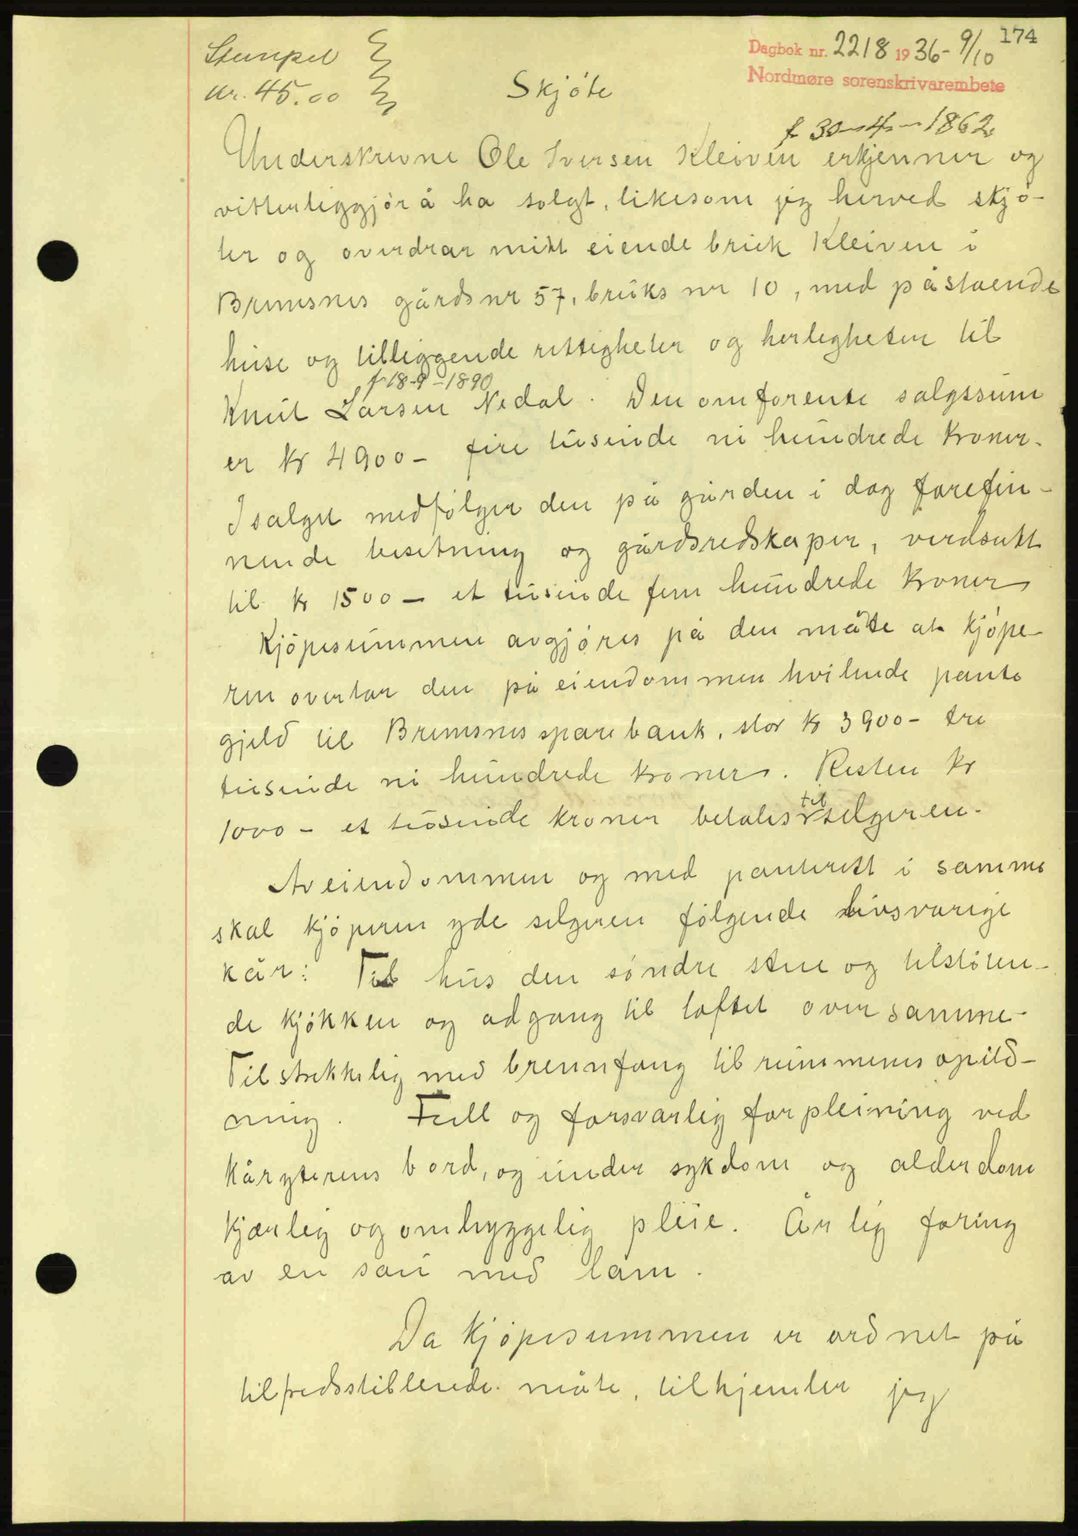 174
Stempel
kr. 45.00
Dagbok nr. 2218 1936 - 9/10
Nordmøre sorenskrivarembete
Skjøte
f 30-4-1862
Underskrevne Ole Iversen Kleiven erkjenner og
vitterliggjør å ha solgt, likesom jeg herved skjø-
ter og overdrar mitt eiende bruk Kleiven i
Bremsnes gårds nr 57, bruks nr 10, med påstående
huse og tilliggende rettigheter og herligheter til
f 18-9-1890
Knut Larsen Nedal. Den omforente salgssum
er kr 4900- fire tusende ni hundrede kroner.
I salget medfølger den på gården i dag forefin-
nende besetning og gårdsredskaper, verdsatt
til kr 1500- et tusende fem hundrede kroner
Kjøpesummen avgjøres på den måte at kjøpe-
ren overtar den på eiendommen hvilende pante
gjeld til Bremsnes sparebank, stor kr 3900- tre
tusende ni hundrede kroner. Resten kr
til
1000- et tusende kroner betales selgeren.
Av eiendommen og med panterett i samme
skal kjøperen yde selgeren følgende livsvarige
kår: Til hus den søndre stue og tilstøten-
de kjøkken og adgang til loftet over samme.
Tilstrekkelig med brennfang til rummenes opild-
ning. Full og forsvarlig forpleining ved
kåryterens bord, og under sykdom og alderdom
kjærlig og omhyggelig pleie. Årlig foring
av en sau med lam.
Da kjøpesummen er ordnet på
tilfredsstillende måte, tilhjemler jeg